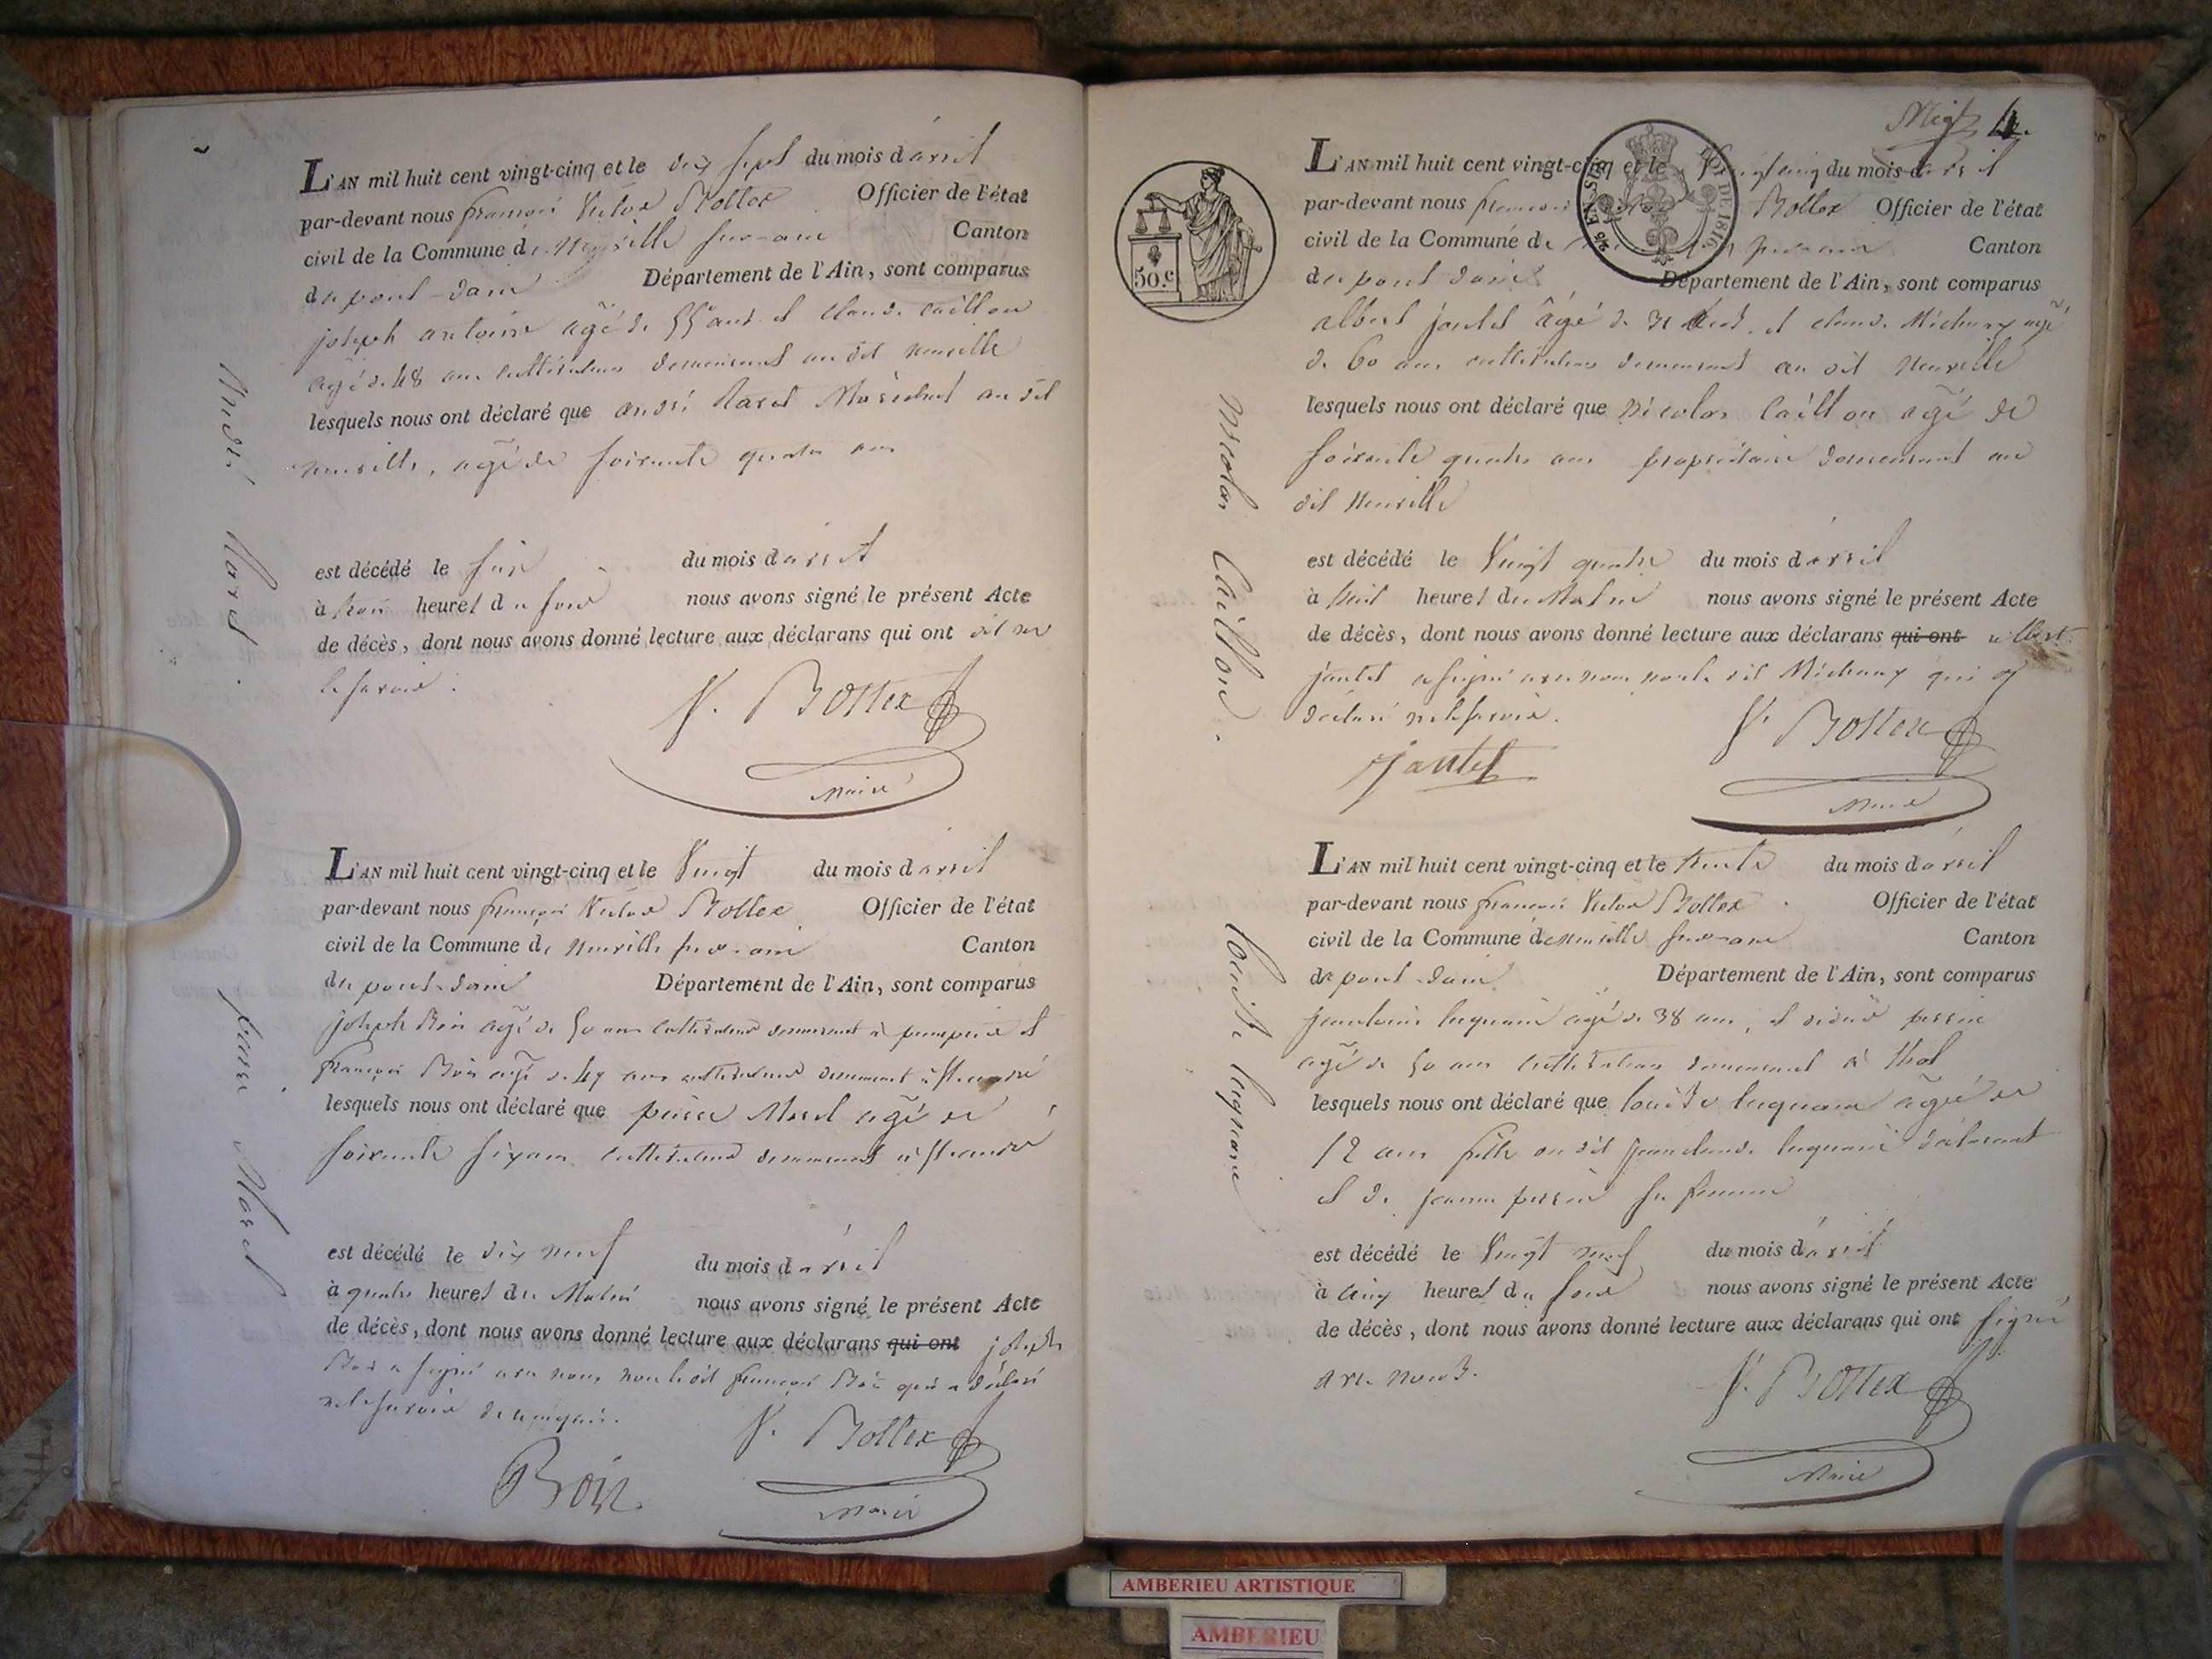 L'AN mil huit cent vingt-cinq et le dix sept du mois d'avril
par-devant nous françois Victor Bottex Officier de l'état
civil de la Commune de Neuville sur-ain Canton
du pont-dain Département de l'Ain, sont comparus
joseph antoine agé de 55 ans et Claude Caillon
agé de 48 ans cultivateurs demeurant au dit neuville
lesquels nous ont déclaré que andré Maréchal au dit
neuville, agé de soixante quatre ans
est décédé le du mois d'avril
à heures du soir nous avons signé le présent Acte
de décès, dont nous avons donné lecture aux déclarans qui ont dit ne
le savoir.
V. Bottex
Maire
André
L'AN mil huit cent vingt-cinq et le Vingt du mois d'avril
par-devant nous françois Victor Bottex Officier de l'état
civil de la Commune de Neuville sur-ain Canton
du pont-dain Département de l'Ain, sont comparus
joseph Boir agé de 50 ans cultivateur demeurant à et
françois Boir agé de 47 ans cultivateur demeurant à st andré
lesquels nous ont déclaré que pierre Morel agé de
soixante six ans cultivateur demeurant à st andré
est décédé le dix neuf du mois d'avril
à quatre heures du Matin nous avons signé le présent Acte
de décès, dont nous avons donné lecture aux déclarans qui ont joseph
Boir a signé avec nous non le dit françois Boir qui a déclaré
ne le savoir de ce requis.
V. Bottex
Boir
Maire
pierre Morel
4.
L'AN mil huit cent vingt-cinq et le Vingt cinq du mois d'avril
par-devant nous françois Bottex Officier de l'état
civil de la Commune de sur ain Canton
du pont dain Département de l'Ain, sont comparus
50.c
LOI DE 1816.
albert jantet âgé de 31 ans et claude Michaux agé
de 60 ans cultivateurs demeurant au dit Neuville
lesquels nous ont déclaré que nicolas Caillon agé de
soixante quatre ans propriétaire demeurant au
dit Neuville
est décédé le Vingt quatre du mois d'avril
à huit heures du Matin nous avons signé le présent Acte
de décès, dont nous avons donné lecture aux déclarans qui ont albert
jantet a signé avec nous non le dit Michaux qui a
déclaré ne le savoir.
V. Bottex
Jantet
Maire
Nicolas Caillon.
L'AN mil huit cent vingt-cinq et le trente du mois d'avril
par-devant nous françois Victor Bottex Officier de l'état
civil de la Commune de neuville sur-ain Canton
de pont-dain Département de l'Ain, sont comparus
agé de 38 ans, et perrin
agé de 50 ans cultivateurs demeurant à thol
lesquels nous ont déclaré que louise agée de
12 ans fille au dit jean claude déclarant
et de jeanne perrin sa femme
est décédé le Vingt neuf du mois d'avril
à cinq heures du soir nous avons signé le présent Acte
de décès, dont nous avons donné lecture aux déclarans qui ont signé
avec nous.
V. Bottex
Maire
Louise
AMBERIEU ARTISTIQUE
AMBERIEU